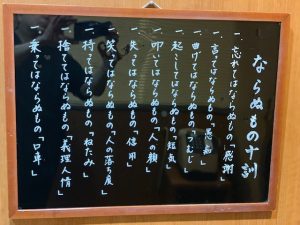 ならぬもの十訓
一、忘れてはならぬもの「感謝」
一、言ってはならぬもの「愚痴」
一、曲げてはならぬもの「つむじ」
一、起こしてはならぬもの「短気」
一、叩いてはならぬもの「人の頬」
一、失ってはならぬもの「信用」
一、笑ってはならぬもの「人の落ち度」
一、持ってはならぬもの「ねたみ」
一、捨ててはならぬもの「義理人情」
一、乗ってはならぬもの「口車」